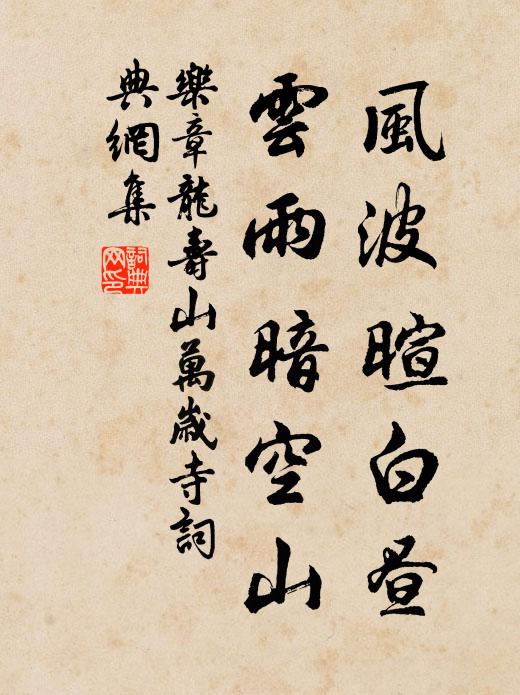 風波暄白昼
雲雨暗空山
樂章龍壽山萬歲寺詞
典網集
詞典
网印